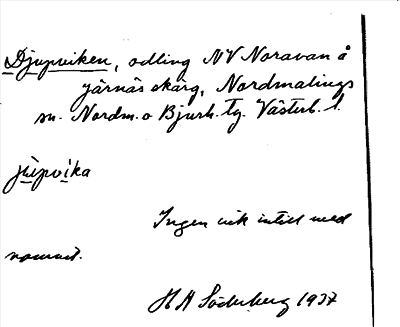 Djupviken, odling NV Noravan å
Järnäs skärg, Nordmalings
sn. Nordm. o Bjurh. tg. Västerb. l.
jùpvìka
Ingen vik intill med
namnet.
H A Söderberg 1937